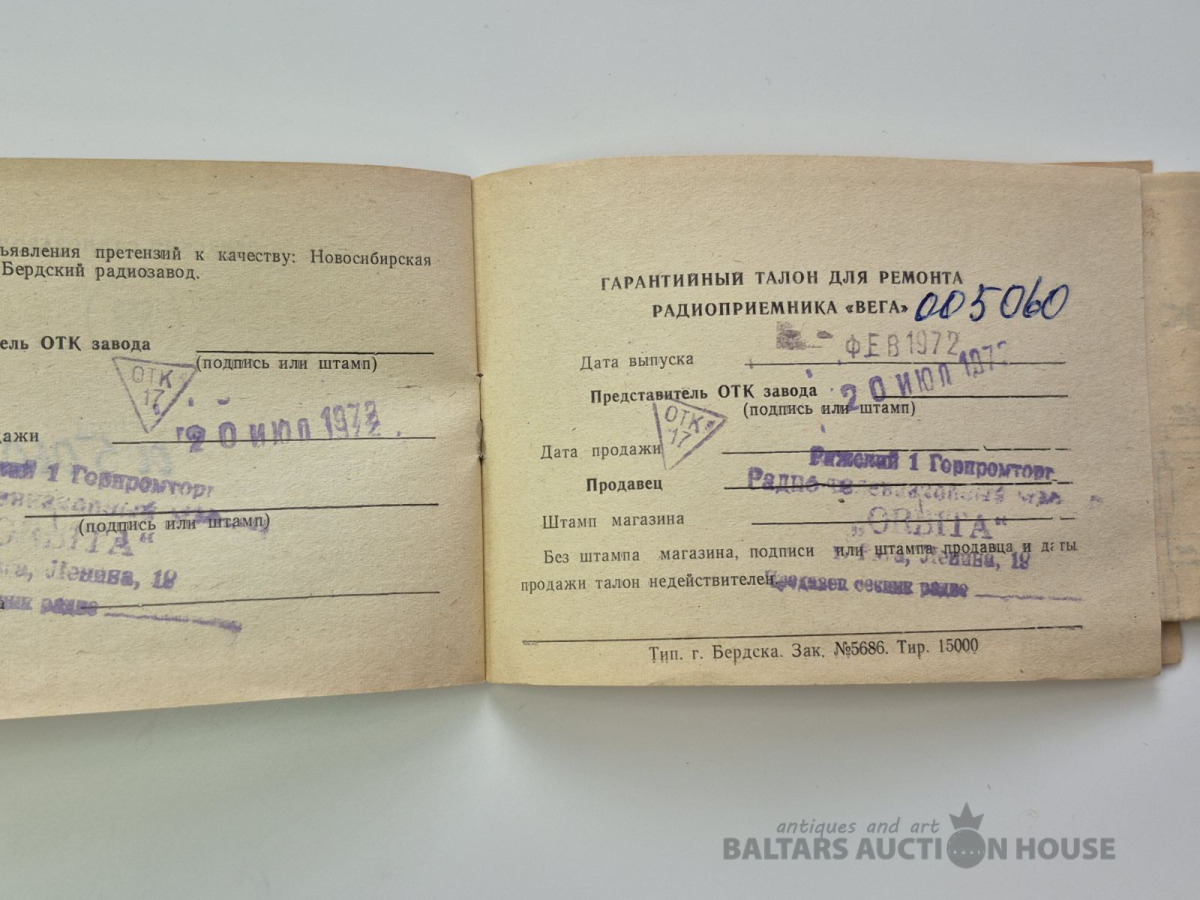 ъявления претензий к качеству: Новосибирская
Бердский радиозавод.
ель ОТК завода
(подпись или штамп)
ОТК
17
дажи
20 ИЮЛ 1972
1 Горпромторг
(подпись или штамп)
Ленина, 19
радио
ГАРАНТИЙНЫЙ ТАЛОН ДЛЯ РЕМОНТА
РАДИОПРИЕМНИКА «ВЕГА» 005060
Дата выпуска
ФЕВ 1972
Представитель ОТК завода
20 ИЮЛ 1972
(подпись или штамп)
ОТК
17
Дата продажи
Рижский 1 Горпромторг
Продавец
Радио
Штамп магазина
„ORBITA“
Без штампа магазина, подписи или штампа продавца и даты
Ленина, 19
продажи талон недействителен.
Продавец секции радио
Тип. г. Бердска. Зак. №5686. Тир. 15000
antiques and art
BALTARS AUCTION HOUSE